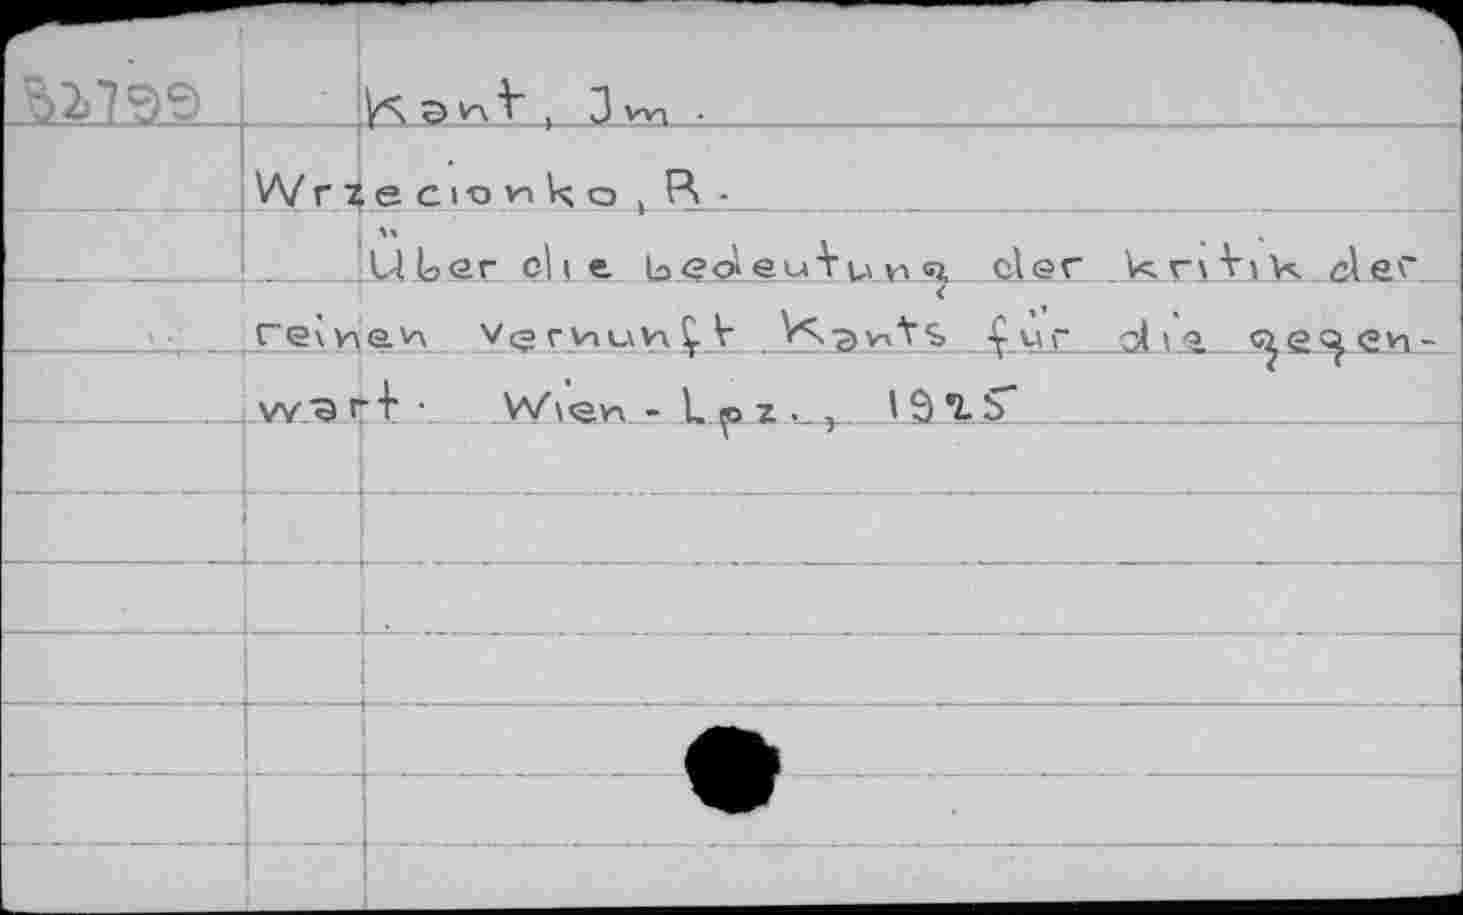 82799
Kant, Im.
Wrzecionko, R.
Über die bedeutung der kritik der
reinen vernunft Kants für die gegen-
wart. Wien - Lpz., 1925